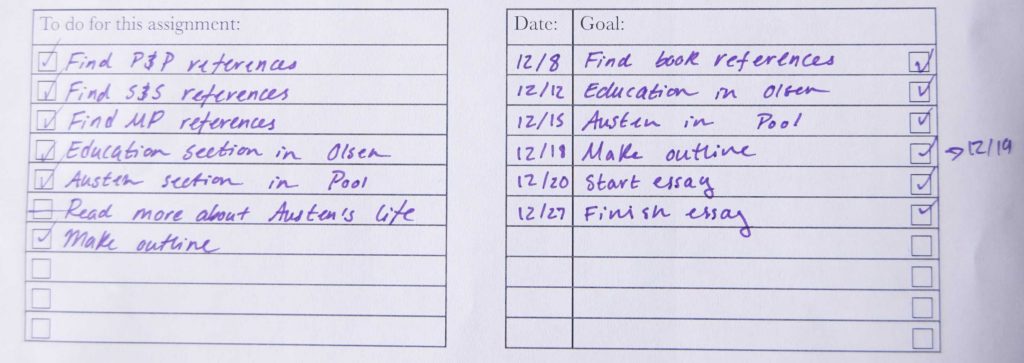 To do for this assignment:
Find P&P references
Find S&S references
Find MP references
Education section in Olsen
Austen section in Pool
Read more about Austen's life
Make outline
Date: Goal:
12/8 Find book references
12/12 Education in Olsen
12/15 Austen in Pool
12/18 Make outline →12/19
12/20 Start essay
12/27 Finish essay